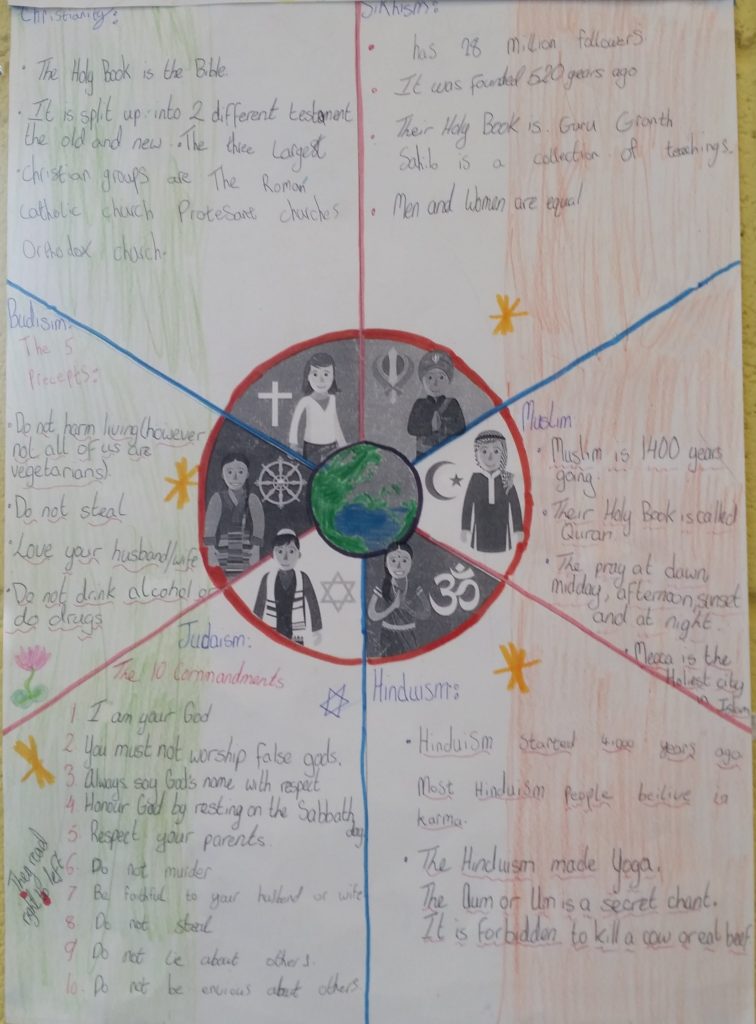 Christianity:
• The Holy Book is the Bible.
• It is split up into 2 different testament
the old and new. • The three Largest
• Christian groups are The Roman
catholic church Protesant churches
Orthodox church.
Sikhism:
• has 28 million followers
• It was founded 520 years ago
• Their Holy Book is Guru Granth
Sahib is a collection of teachings.
• Men and Women are equal
Budisim:
The 5
Precepts:
• Do not harm living (however
not all of us are
vegetarians).
• Do not steal
• Love your husband/wife
• Do not drink alcohol or
do drugs
Muslim
• Muslim is 1400 years
going.
• Their Holy Book is called
Quran
• The pray at dawn,
midday, afternoon, sunset
and at night.
• Mecca is the
Holiest city
in Islam
Judaism:
The 10 Commandments
1 I am your God
2 You must not worship false gods.
3. Always say God's name with respect
4 Honour God by resting on the Sabbath
day
5. Respect your parents.
6. Do not murder
7 Be faithful to your husband or wife
8 Do not steal
9 Do not lie about others.
10. Do not be envious about others
They read
right to left
Hinduism:
• Hinduism started 4,000 years ago
Most Hinduism people beilive in
karma.
• The Hinduism made Yoga.
The Aum or Um is a secret chant.
It is forbidden to kill a cow or eat beef
ॐ